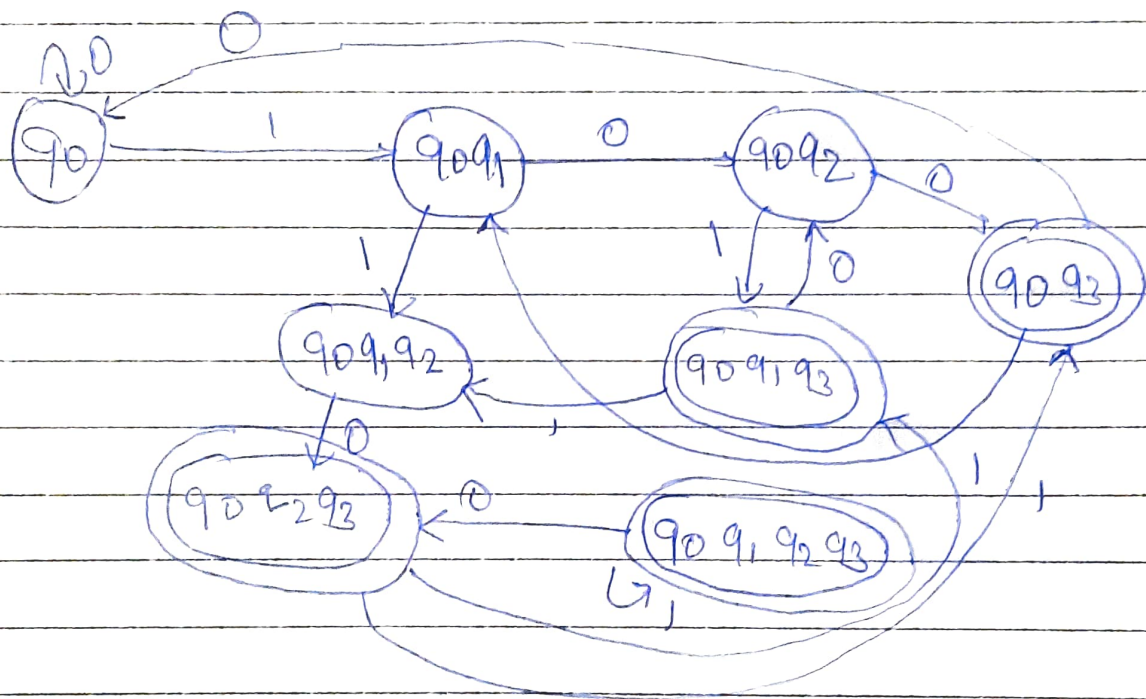 0
0
q0 1 q0q1 0 q0q2 0
1 1 0 q0q3
q0q1q2 q0q1q3
1
0 1 1
q0q2q3 0 q0q1q2q3
1